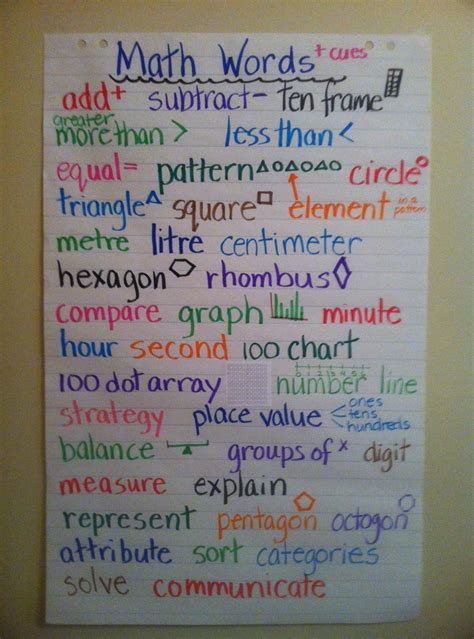 Math Words + cues
add+ subtract- Ten frame
greater
more than > less than <
equal= pattern circle
triangle square element in a pattern
metre litre centimeter
hexagon rhombus
compare graph minute
hour second 100 chart
100 dot array number line
ones
strategy place value tens
hundreds
balance groups of x digit
measure explain
represent pentagon octagon
attribute sort categories
solve communicate